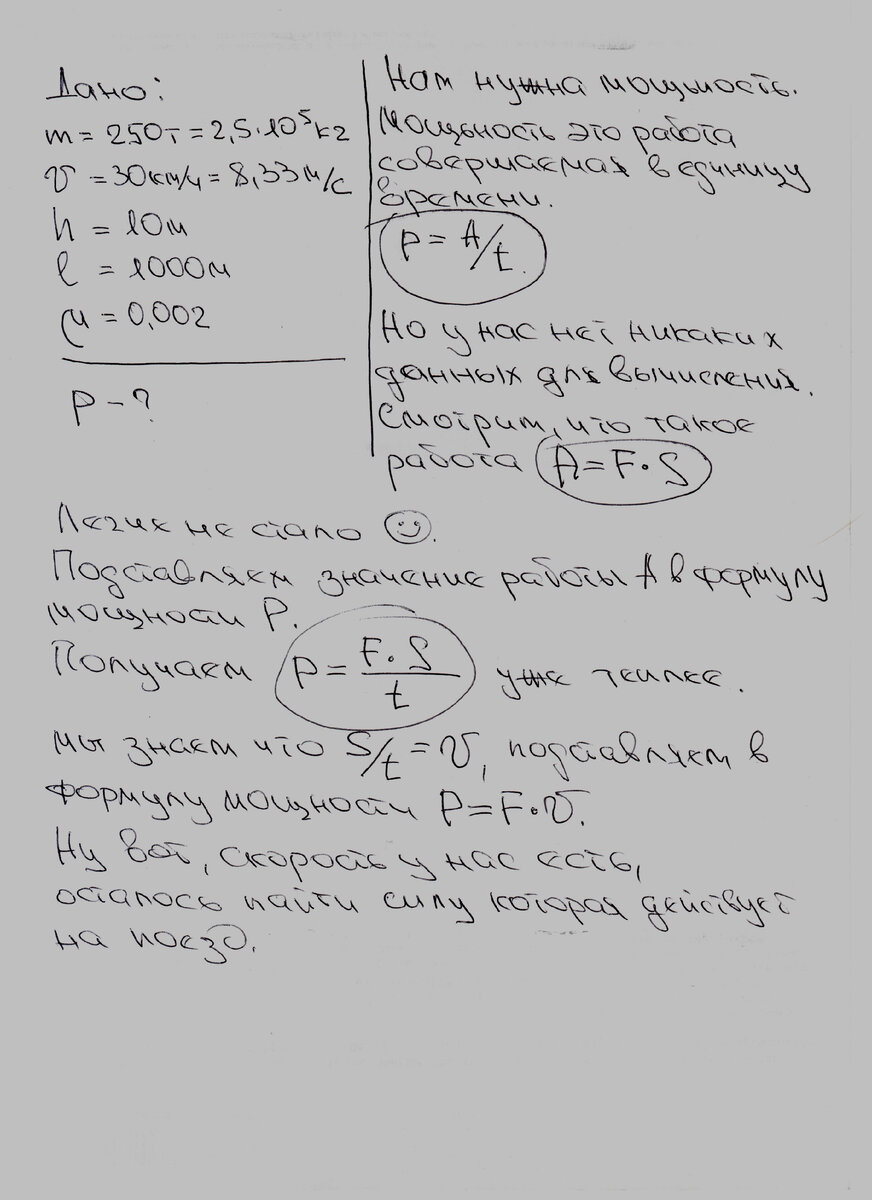 Дано:
m = 250т = 2,5·10⁵кг
υ = 30км/ч = 8,33м/с
h = 10м
l = 1000м
μ = 0,002
P – ?
Нам нужна мощьность.
Мощьность это работа
совершаемая в единицу
времени.
P = A/t.
Но у нас нет никаких
данных для вычисления.
Смотрим, что такое
работа A = F·S
Легче не стало ☺.
Подставляем значение работы A в формулу
мощности P.
Получаем P = F·S/t уже теплее.
мы знаем что S/t = υ, подставляем в
формулу мощности P = F·υ.
Ну вот, скорость у нас есть,
осталось найти силу которая действует
на поезд.